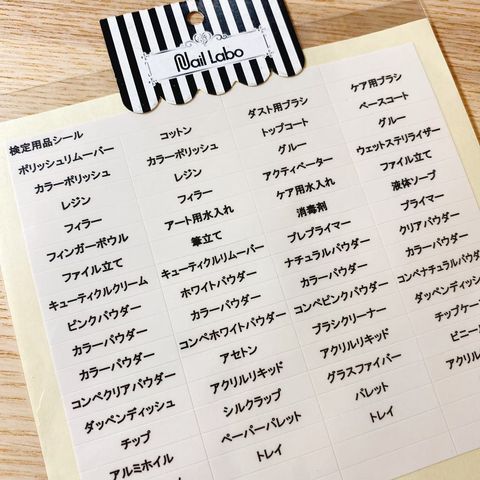 Nail Labo
検定用品シール コットン ダスト用ブラシ ケア用ブラシ
ポリッシュリムーバー カラーポリッシュ トップコート ベースコート
カラーポリッシュ レジン グルー グルー
レジン フィラー アクティベーター ウェットステリライザー
フィラー アート用水入れ ケア用水入れ ファイル立て
フィンガーボウル 筆立て 消毒剤 液体ソープ
ファイル立て キューティクルリムーバー プレプライマー プライマー
キューティクルクリーム ホワイトパウダー ナチュラルパウダー クリアパウダー
ピンクパウダー カラーパウダー カラーパウダー カラーパウダー
カラーパウダー コンペホワイトパウダー コンペピンクパウダー コンペナチュラルパウダー
カラーパウダー アセトン ブラシクリーナー ダッペンディッシュ
コンペクリアパウダー アクリルリキッド アクリルリキッド チップケー
ダッペンディッシュ シルクラップ グラスファイバー ビニール
チップ ペーパーパレット パレット アクリル
アルミホイル トレイ トレイ